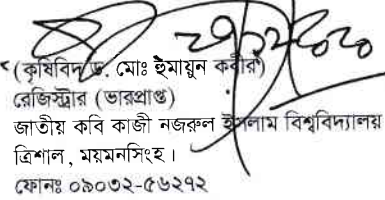 (কৃষিবিদ ড. মোঃ হুমায়ুন কবীর)
রেজিস্ট্রার (ভারপ্রাপ্ত)
জাতীয় কবি কাজী নজরুল ইসলাম বিশ্ববিদ্যালয়
ত্রিশাল, ময়মনসিংহ।
ফোনঃ ০৯০৩২-৫৬২৭২